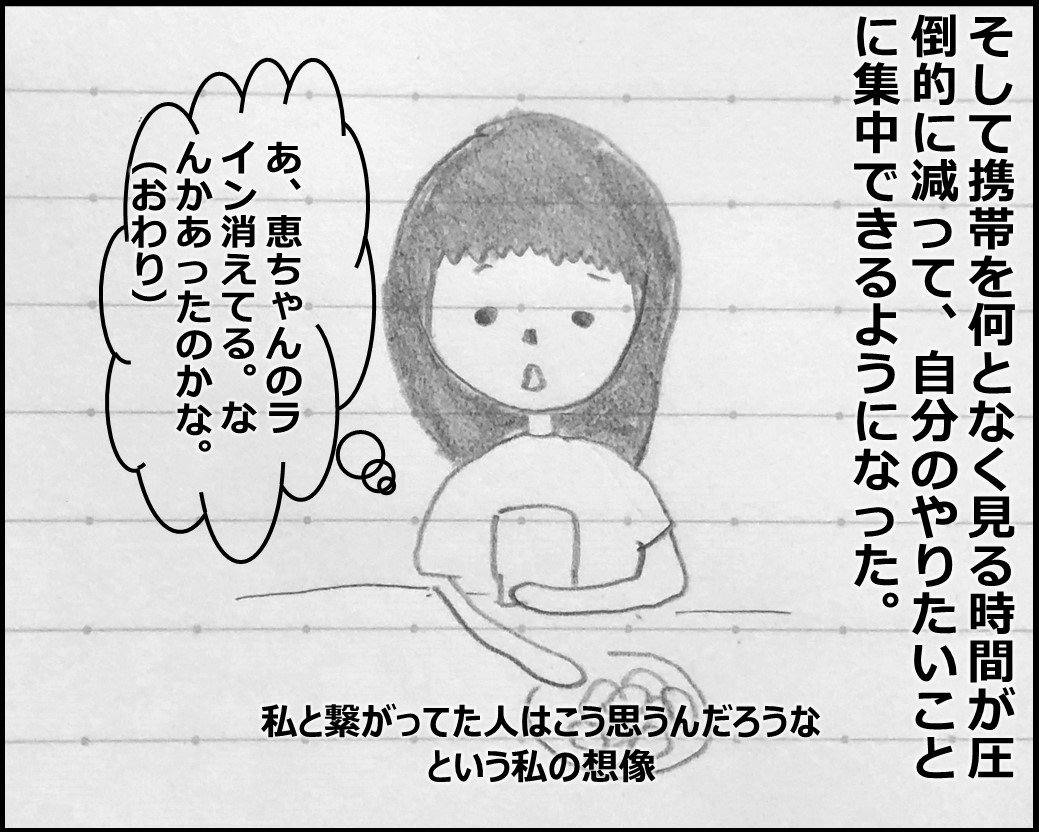 そして携帯を何となく見る時間が圧
倒的に減って、自分のやりたいこと
に集中できるようになった。
あ、恵ちゃんのラ
イン消えてる。な
んかあったのかな。
(おわり)
私と繋がってた人はこう思うんだろうな
という私の想像